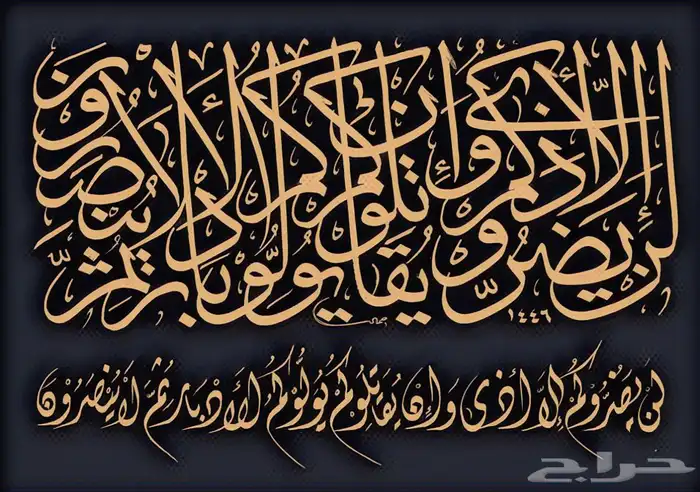 لن يضروكم إلا أذى وإن يقاتلوكم يولوكم الأدبار ثم لا ينصرون
١٤٤٦
لَنْ يَضُرُّوكُمْ إِلَّا أَذًى وَإِنْ يُقَاتِلُوكُمْ يُوَلُّوكُمُ الْأَدْبَارَ ثُمَّ لَا يُنْصَرُونَ
حراج